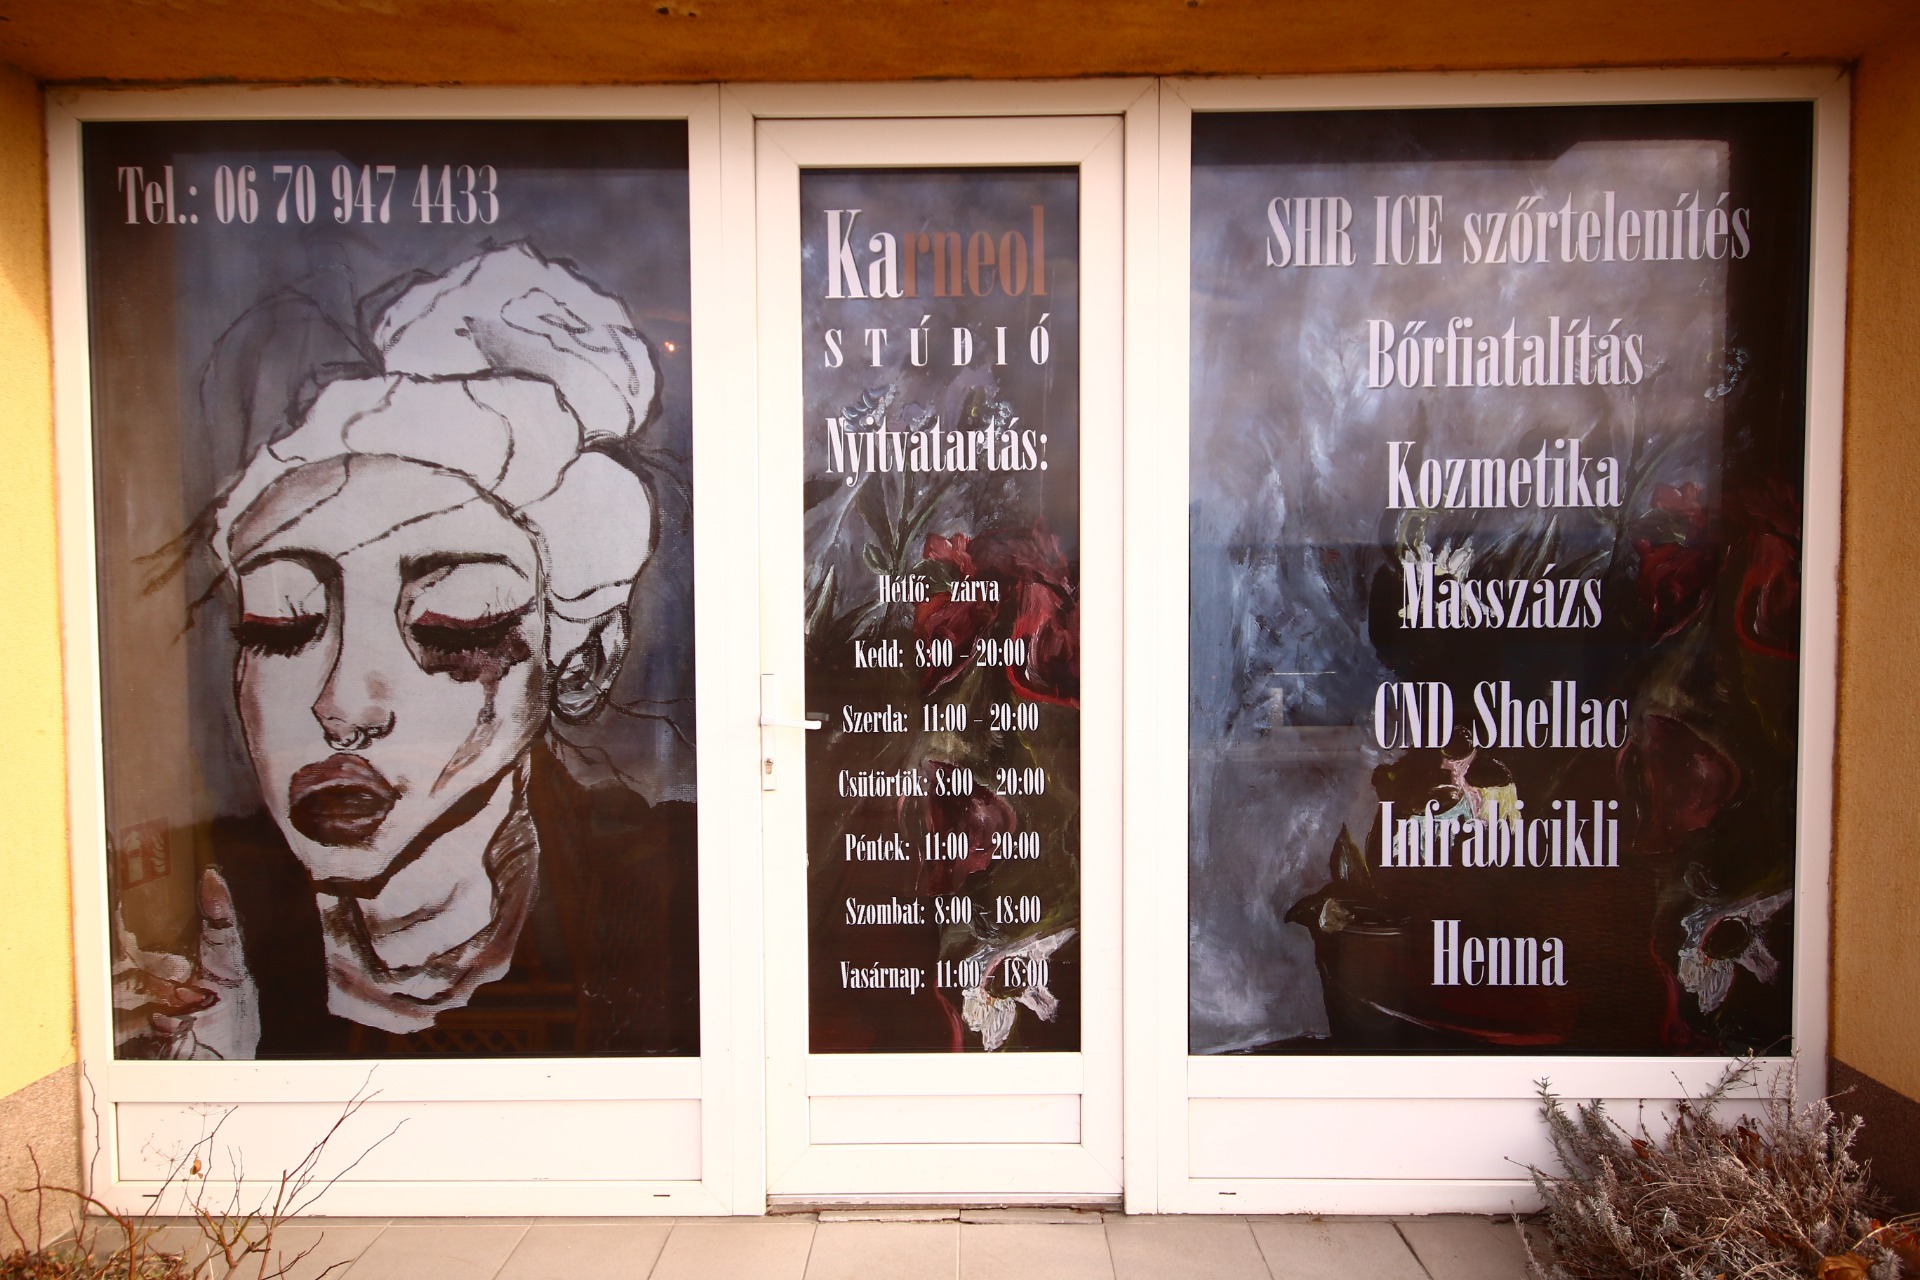 Tel.: 06 70 947 4433
Karneol
STÚDIÓ
Nyitvatartás:
Hétfő: zárva
Kedd: 8:00 - 20:00
Szerda: 11:00 - 20:00
Csütörtök: 8:00 - 20:00
Péntek: 11:00 - 20:00
Szombat: 8:00 - 18:00
Vasárnap: 11:00 - 18:00
SHR ICE szőrtelenítés
Bőrfiatalítás
Kozmetika
Masszázs
CND Shellac
Infrabicikli
Henna